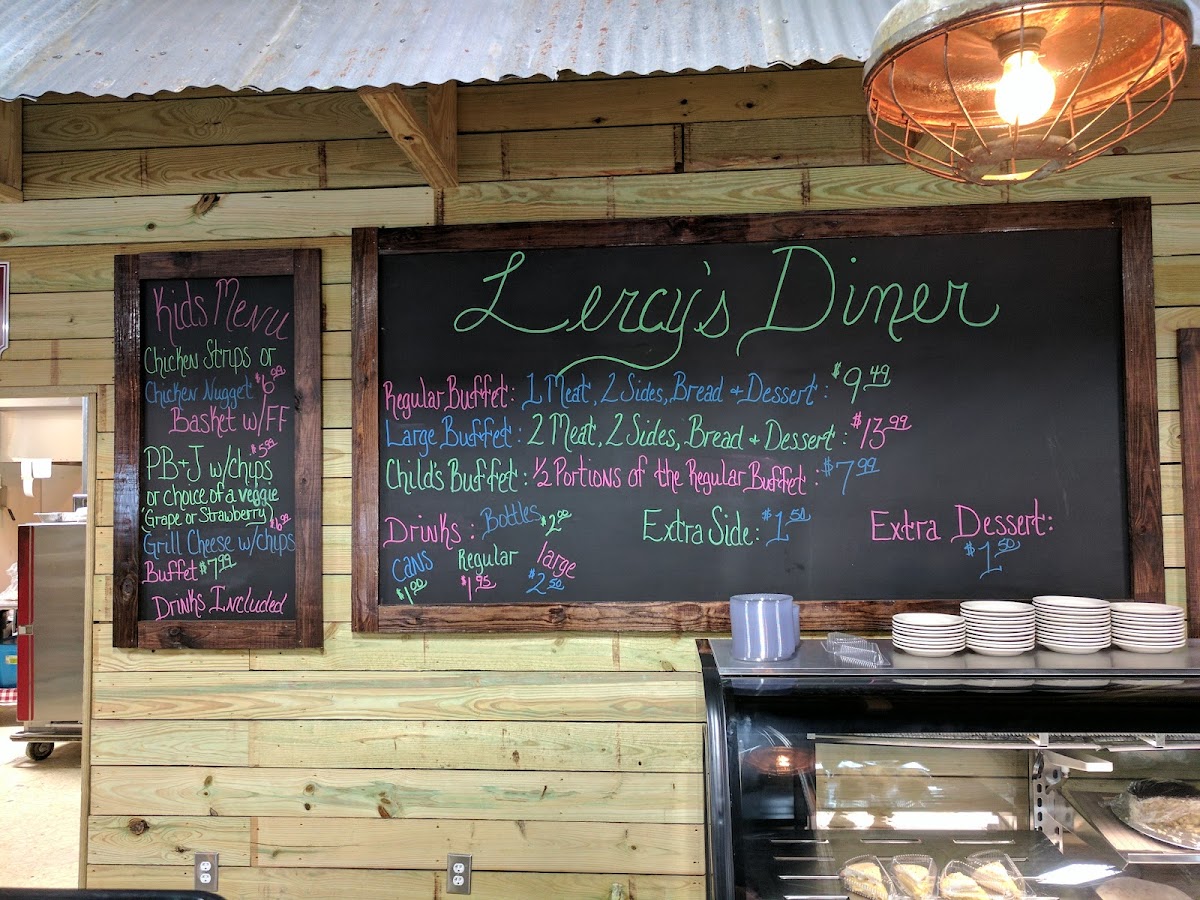 Kids Menu
Chicken Strips or
Chicken Nugget $6.99
Basket w/FF
$5.99
PB+J w/chips
or choice of a veggie
(Grape or Strawberry)
$6.99
Grill Cheese w/chips
Buffet $7.99
Drinks Included
Lercy's Diner
Regular Buffet: 1 Meat, 2 Sides, Bread + Dessert: $9.49
Large Buffet: 2 Meat, 2 Sides, Bread + Dessert: $13.99
Child's Buffet: ½ Portions of the Regular Buffet: $7.99
Drinks: Bottles $2.00
Cans $1.00
Regular $1.95
large $2.50
Extra Side: $1.50
Extra Dessert:
$1.50